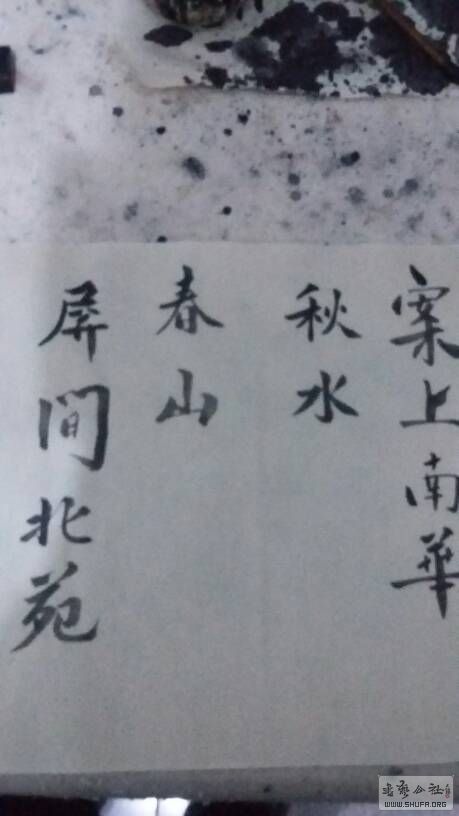 案上南華
秋水
春山
屏間北苑
書藝公社
WWW.SHUFA.ORG